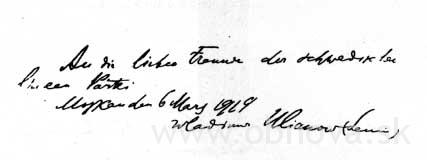 An die lieben Freunde der schwedischen
linken Partei
Moskau den 6 März 1919
Wladimir Ulianow (Lenin)
www.obnova.sk